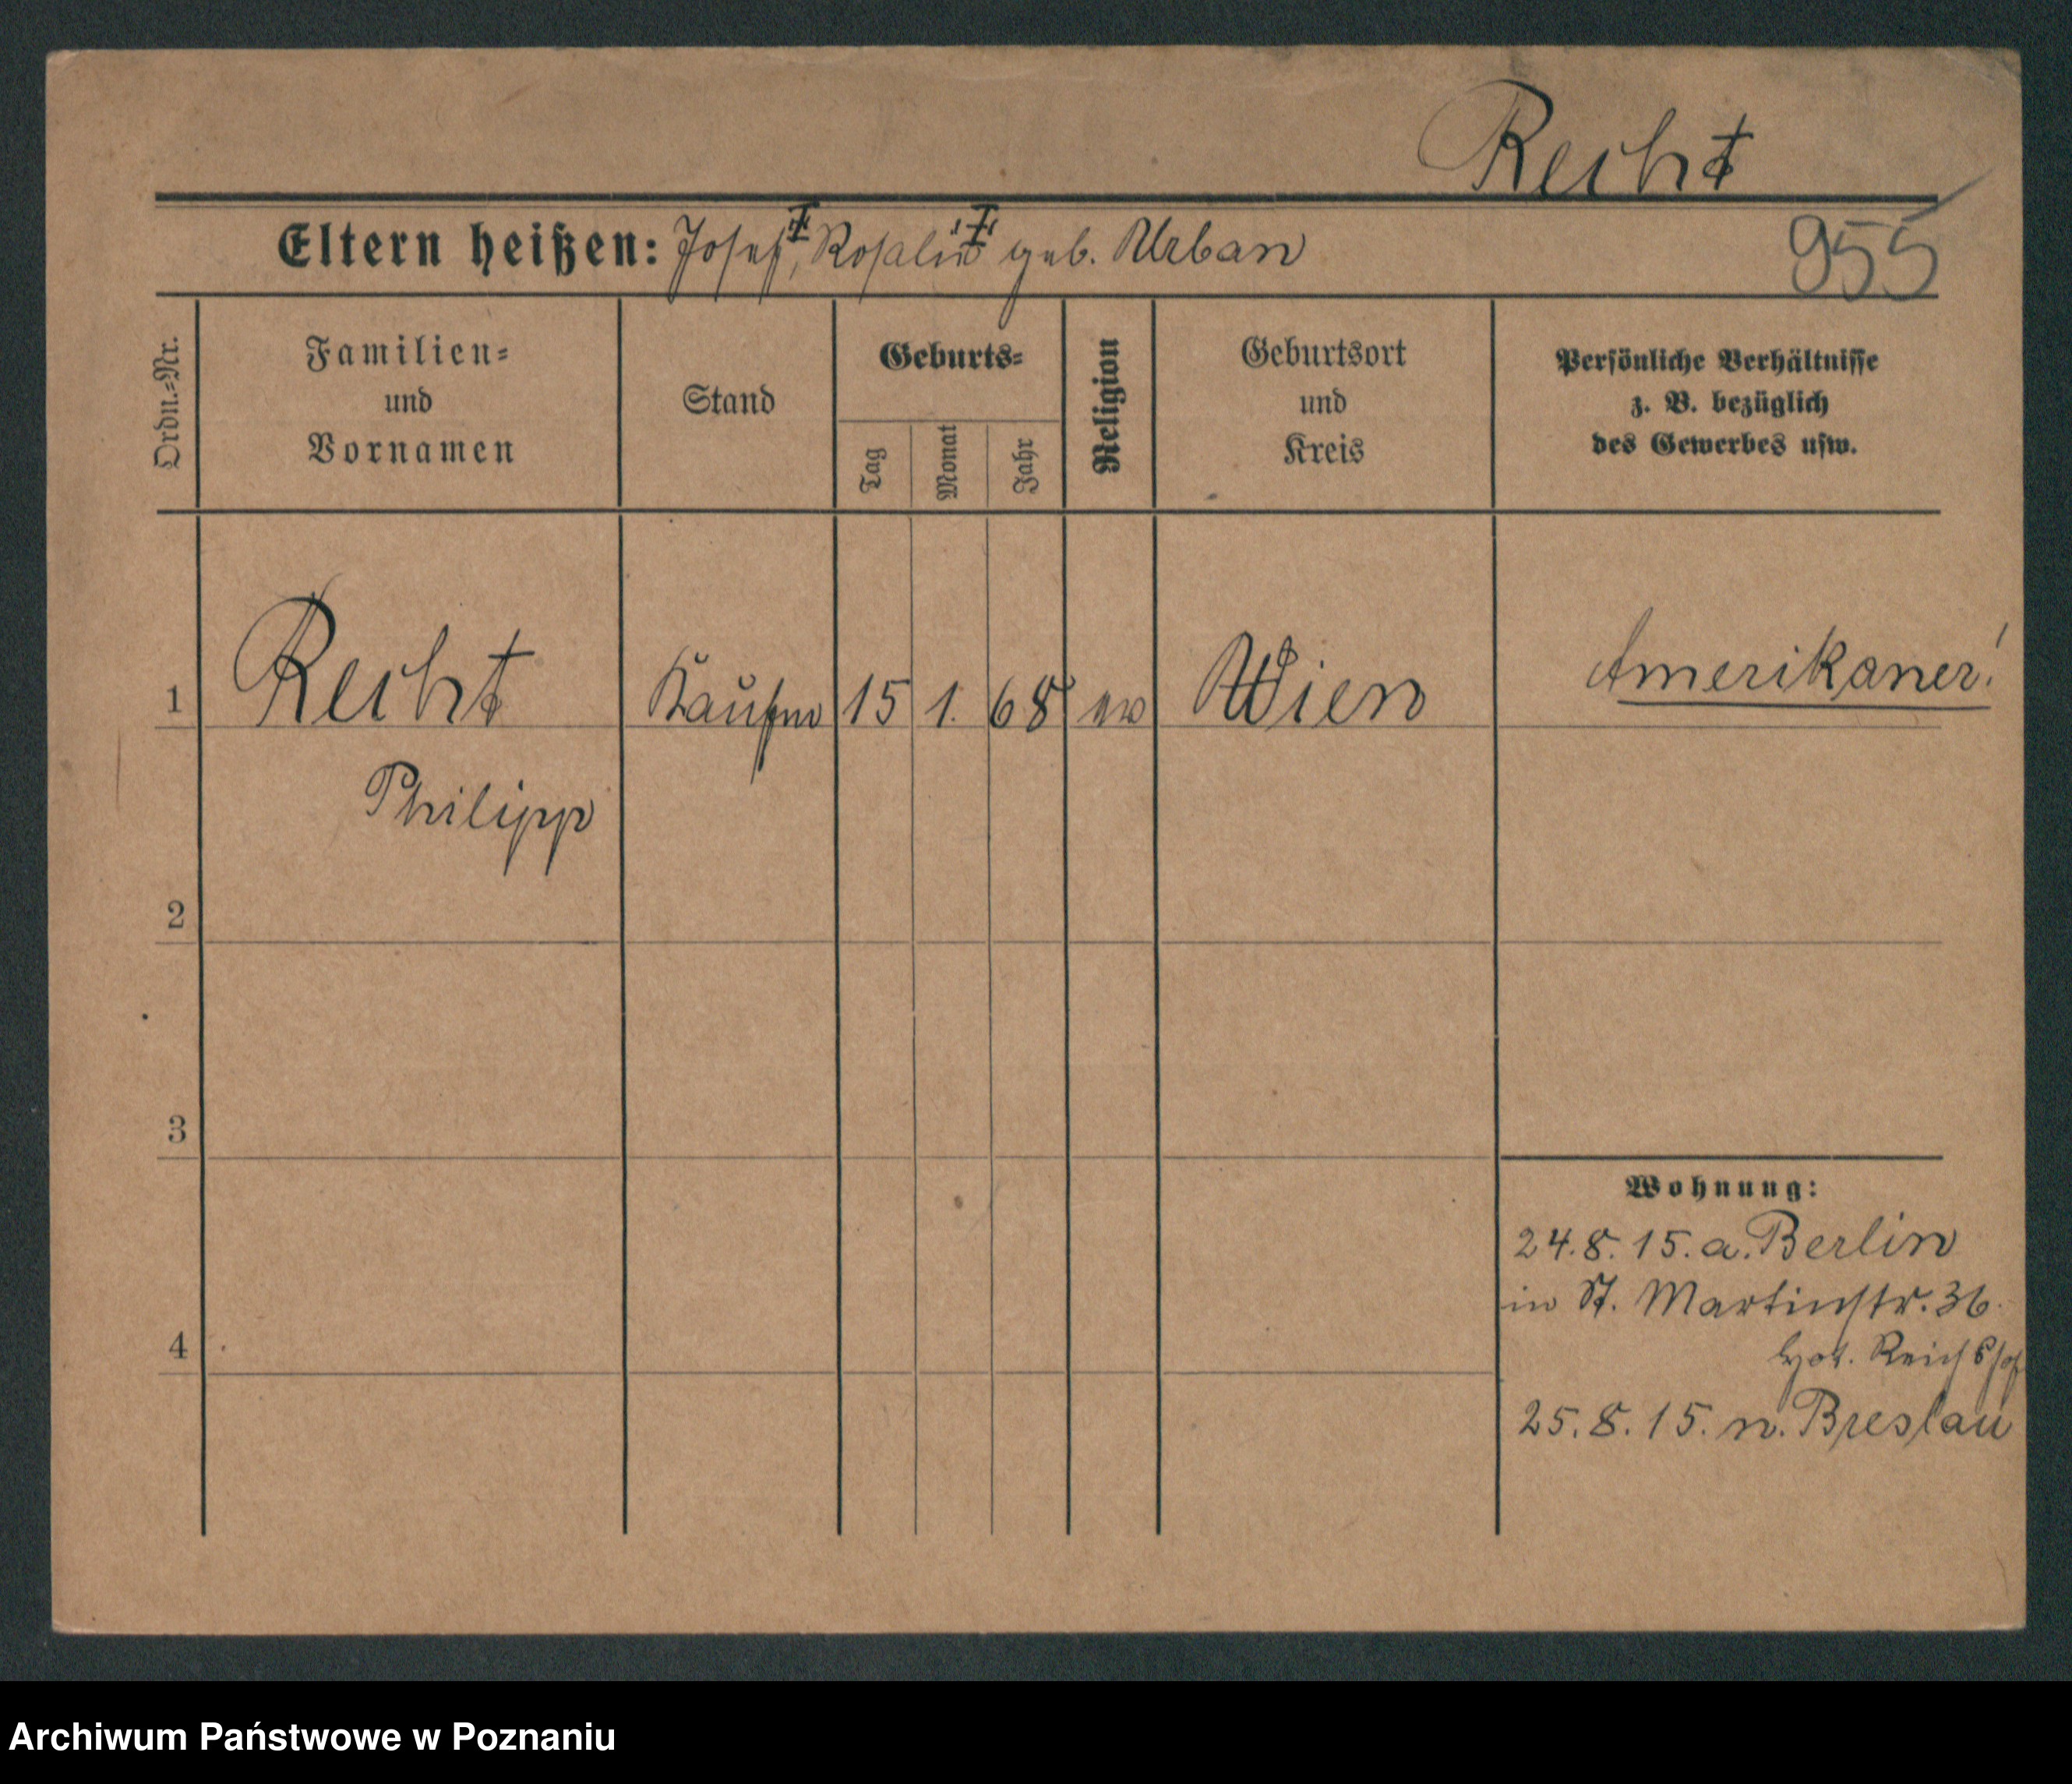 Recht
Eltern heißen: Josef, Rosalie geb. Urban
955
Ordn.-Nr.
Familien-
und
Vornamen
Stand
Geburts-
Tag
Monat
Jahr
Religion
Geburtsort
und
Kreis
Persönliche Verhältnisse
z. B. bezüglich
des Gewerbes usw.
1 Recht Kaufm 15 1. 68 ev Wien Amerikaner!
Philipp
2
3
Wohnung:
24.8.15. a. Berlin
in St. Martinstr. 36.
4
Hot. Reichshof
25.8.15. n. Breslau
Archiwum Państwowe w Poznaniu